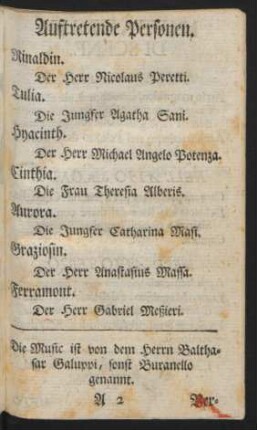 Auftretende Personen.
Rinaldin.
Der Herr Nicolaus Peretti.
Tulia.
Die Jungfer Agatha Sani.
Hyacinth.
Der Herr Michael Angelo Potenza.
Cinthia.
Die Frau Theresia Alberis.
Aurora.
Die Jungfer Catharina Masi.
Graziosin.
Der Herr Anastasius Massa.
Ferramont.
Der Herr Gabriel Meßieri.
Die Music ist von dem Herrn Baltha-
sar Galuppi, sonst Buranello
genannt.
A 2 Per-